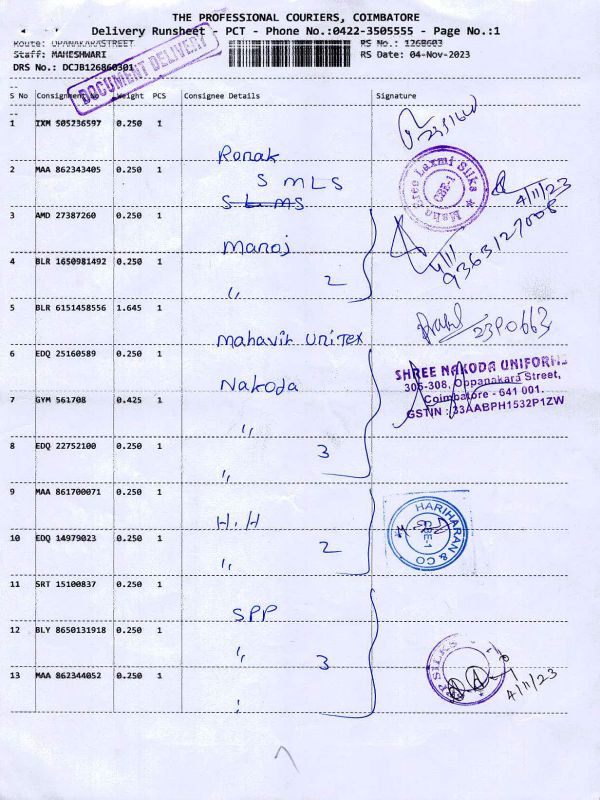 THE PROFESSIONAL COURIERS, COIMBATORE
Delivery Runsheet - PCT - Phone No.:0422-3505555 - Page No.:1
Route: UPANAKARASTREET
RS No.: 1268603
Staff: MAHESHWARI
RS Date: 04-Nov-2023
DRS No.: DCJB126860301
DOCUMENT DELIVERY
S No Consignment No Weight PCS Consignee Details Signature
1 IXM 505236597 0.250 1 Ronak
2351600
2 MAA 862343405 0.250 1 S M L S
S L MS
Maha Shree Laxmi Silks
CBE-1
4/11/23
3 AMD 27387260 0.250 1 Manoj
4/11
9363127008
4 BLR 1650981492 0.250 1 ,, 2
5 BLR 6151458556 1.645 1 Mahavir UniTex
2390663
6 EDQ 25160589 0.250 1 Nakoda
SHREE NAKODA UNIFORMS
305-308, Oppanakara Street,
Coimbatore - 641 001.
GSTIN : 33AABPH1532P1ZW
7 GYM 561708 0.425 1 ,,
8 EDQ 22752100 0.250 1 ,, 3
9 MAA 861700071 0.250 1 H.H
HARIHARAN & CO
CBE-1
10 EDQ 14979023 0.250 1 ,, 2
11 SRT 15100837 0.250 1 SPP
12 BLY 8650131918 0.250 1 ,, 3
SILKS
4/11/23
13 MAA 862344052 0.250 1 ,